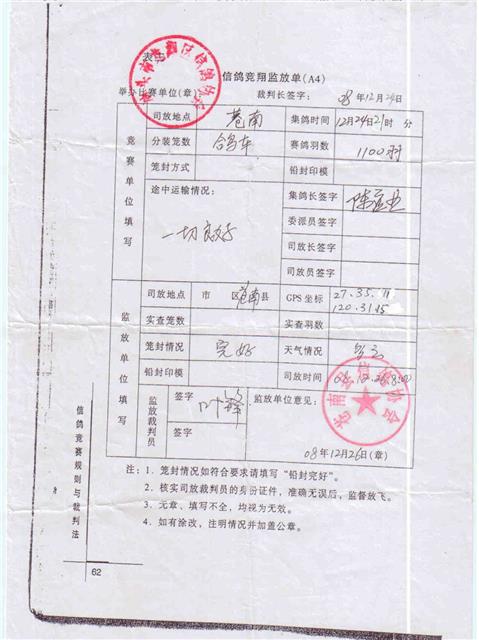 表七
信鸽竞翔监放单(A4)
举办比赛单位(章) 裁判长签字: 08年12月24日
竞赛单位填写
司放地点 苍南 集鸽时间 12月24日21时 分
分装笼数 鸽车 赛鸽羽数 1100羽
笼封方式 铅封印模
途中运输情况: 集鸽长签字
一切良好
委派员签字
司放长签字
司放员签字
监放单位填写
司放地点 市 区 苍南县 GPS坐标 27.35.11
120.31.15
实查笼数 实查羽数
笼封情况 完好 天气情况 多云
铅封印模 司放时间 08.12.26.8:00
监放裁判员 签字 叶锋 监放单位意见:
签字
08年12月26日(章)
苍南县信鸽协会
注: 1. 笼封情况如符合要求请填写“铅封完好”。
2. 核实司放裁判员的身份证件,准确无误后,监督放飞。
3. 无章、填写不全,均视为无效。
4. 如有涂改,注明情况并加盖公章。
信鸽竞赛规则与裁判法
62